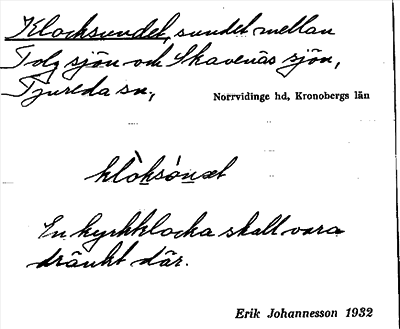 Klocksundet, sundet mellan
Tolg sjön och Skavenäs sjön,
Tjureda sn,
Norrvidinge hd, Kronobergs län
klo̊ksón̲æt
En kyrkklocka skall vara
dränkt där.
Erik Johannesson 1932